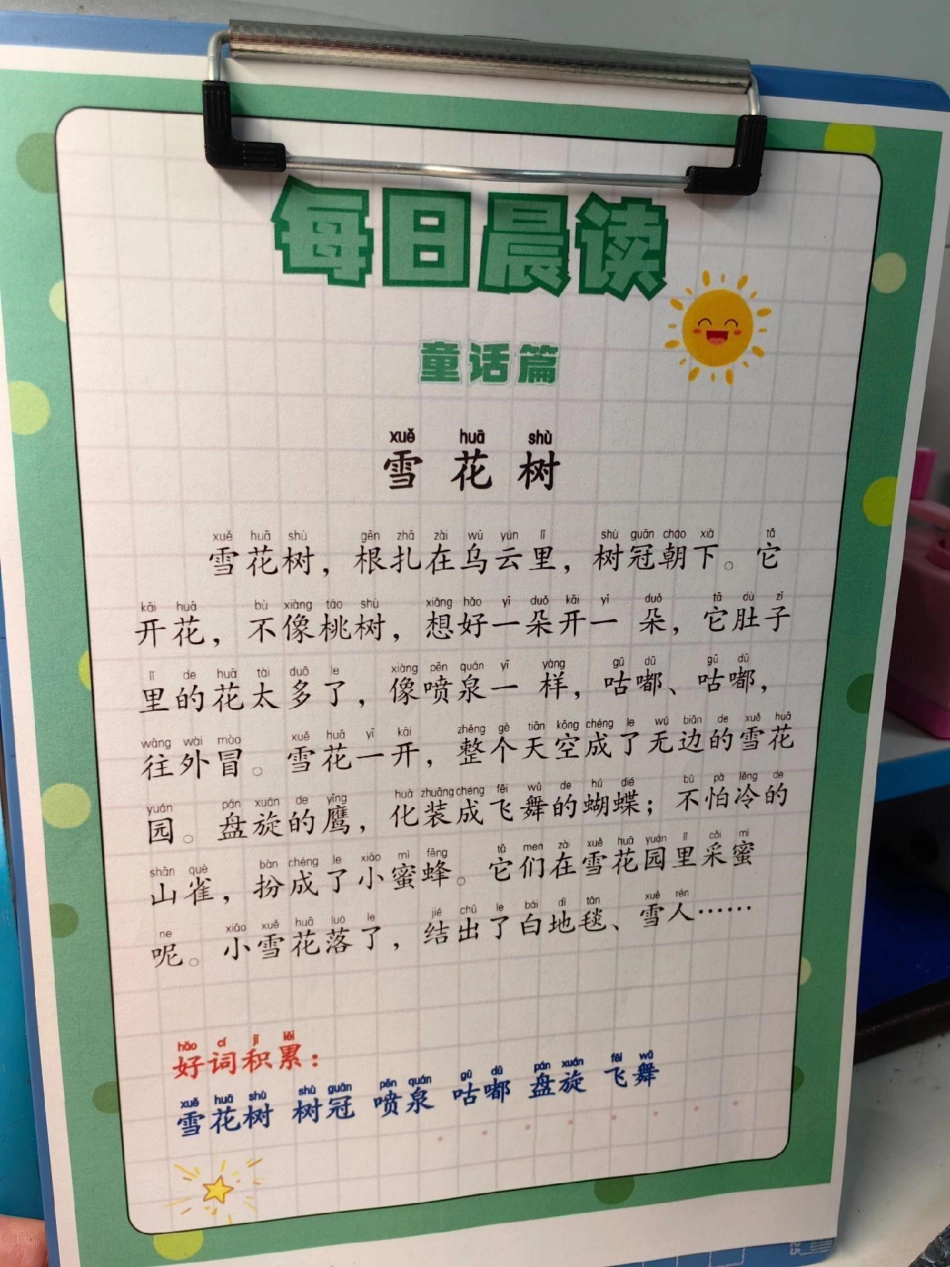 每日晨读
童话篇
xuě huā shù
雪花树
xuě huā shù gēn zhā zài wū yún lǐ shù guān cháo xià tā
雪花树，根扎在乌云里，树冠朝下。它
kāi huā bù xiàng táo shù xiǎng hǎo yī duǒ kāi yī duǒ tā dù zǐ
开花，不像桃树，想好一朵开一 朵，它肚子
lǐ de huā tài duō le xiàng pēn quán yī yàng gū dū gū dū
里的花太多了，像喷泉一 样，咕嘟、咕嘟，
wǎng wài mào xuě huā yī kāi zhěng gè tiān kōng chéng le wú biān de xuě huā
往外冒。雪花一开，整个天空成了无边的雪花
yuán pán xuán de yīng huà zhuāng chéng fēi wǔ de hú dié bù pà lěng de
园。盘旋的鹰，化装成飞舞的蝴蝶；不怕冷的
shān què bàn chéng le xiǎo mì fēng tā men zài xuě huā yuán lǐ cǎi mì
山雀，扮成了小蜜蜂。它们在雪花园里采蜜
ne xiǎo xuě huā luò le jié chū le bái dì tǎn xuě rén
呢。小雪花落了，结出了白地毯、雪人……
hǎo cí jī lěi
好词积累：
xuě huā shù shù guān pēn quán gū dū pán xuán fēi wǔ
雪花树 树冠 喷泉 咕嘟 盘旋 飞舞